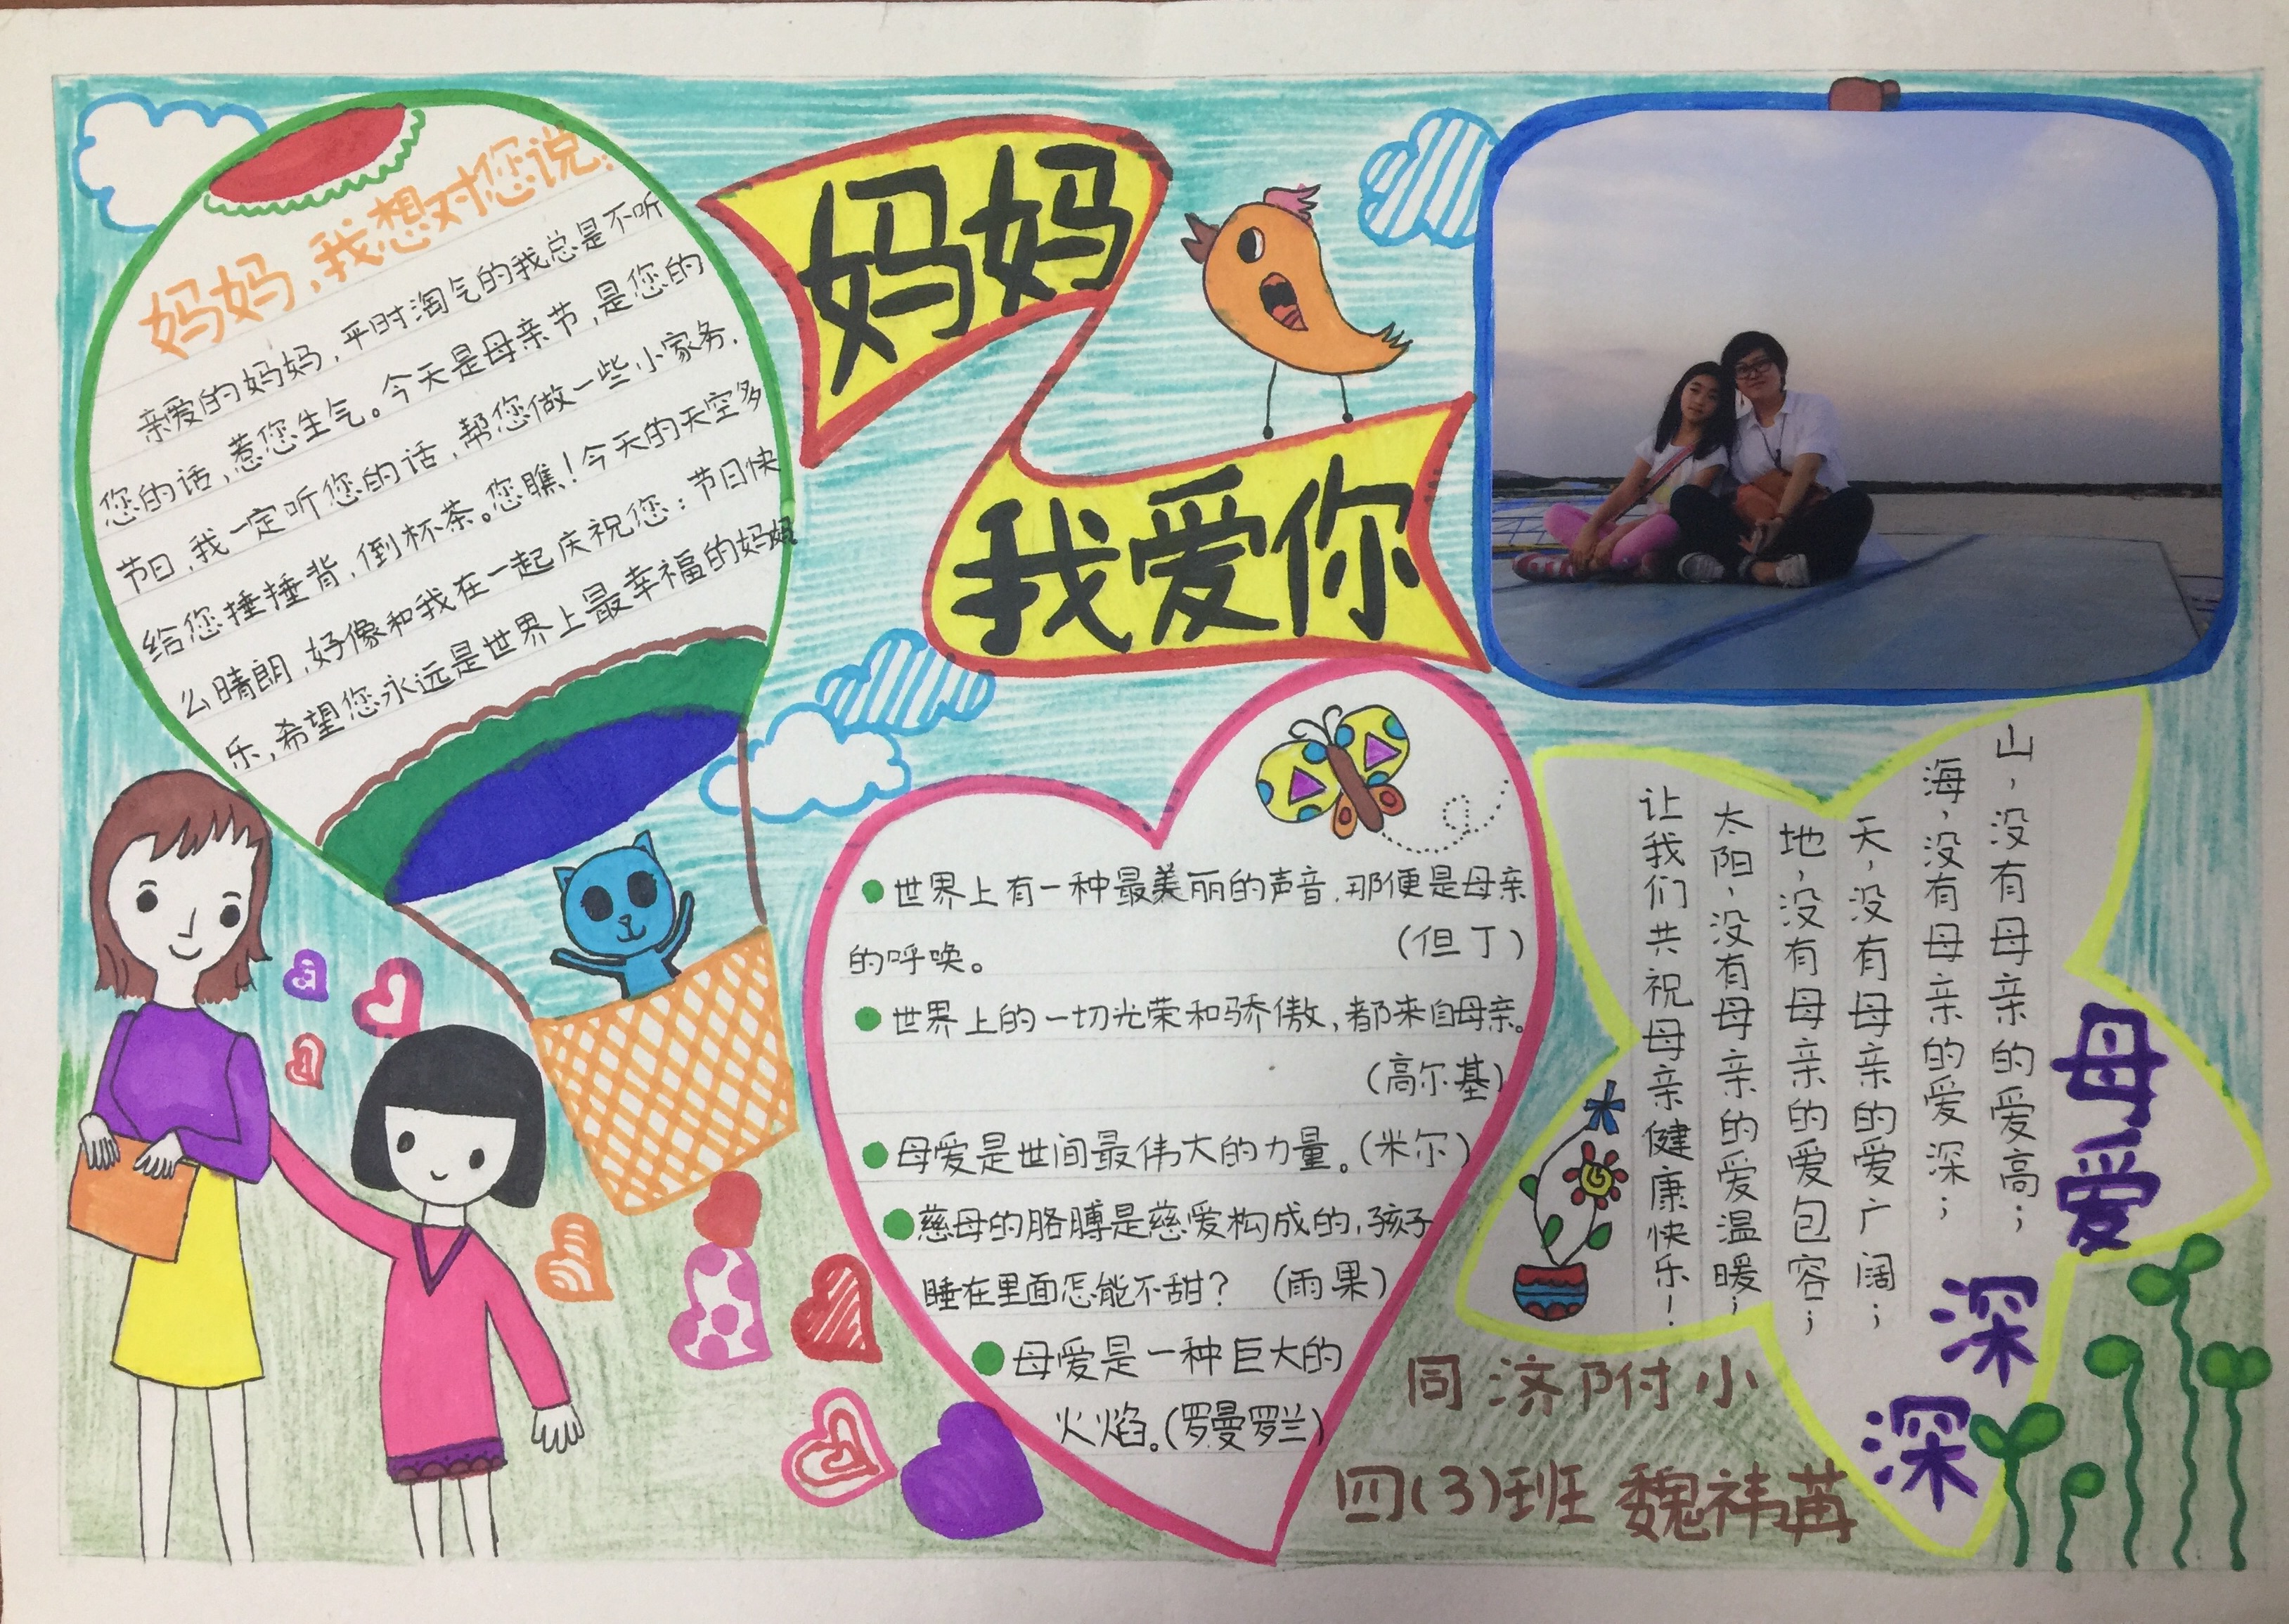 妈妈，我想对您说：
亲爱的妈妈，平时淘气的我总是不听
您的话，惹您生气。今天是母亲节，是您的
节日，我一定听您的话，帮您做一些小家务，
给您捶捶背，倒杯茶。您瞧！今天的天空多
么晴朗，好像和我在一起庆祝您：节日快
乐，希望您永远是世界上最幸福的妈妈
妈妈
我爱你
世界上有一种最美丽的声音，那便是母亲
的呼唤。（但丁）
世界上的一切光荣和骄傲，都来自母亲。
（高尔基）
母爱是世间最伟大的力量。（米尔）
慈母的胳膊是慈爱构成的，孩子
睡在里面怎能不甜？（雨果）
母爱是一种巨大的
火焰。（罗曼罗兰）
母爱深深
山，没有母亲的爱高；
海，没有母亲的爱深；
天，没有母亲的爱广阔；
地，没有母亲的爱包容；
太阳，没有母亲的爱温暖；
让我们共祝母亲健康快乐！
同济附小
四(3)班 魏祎苒